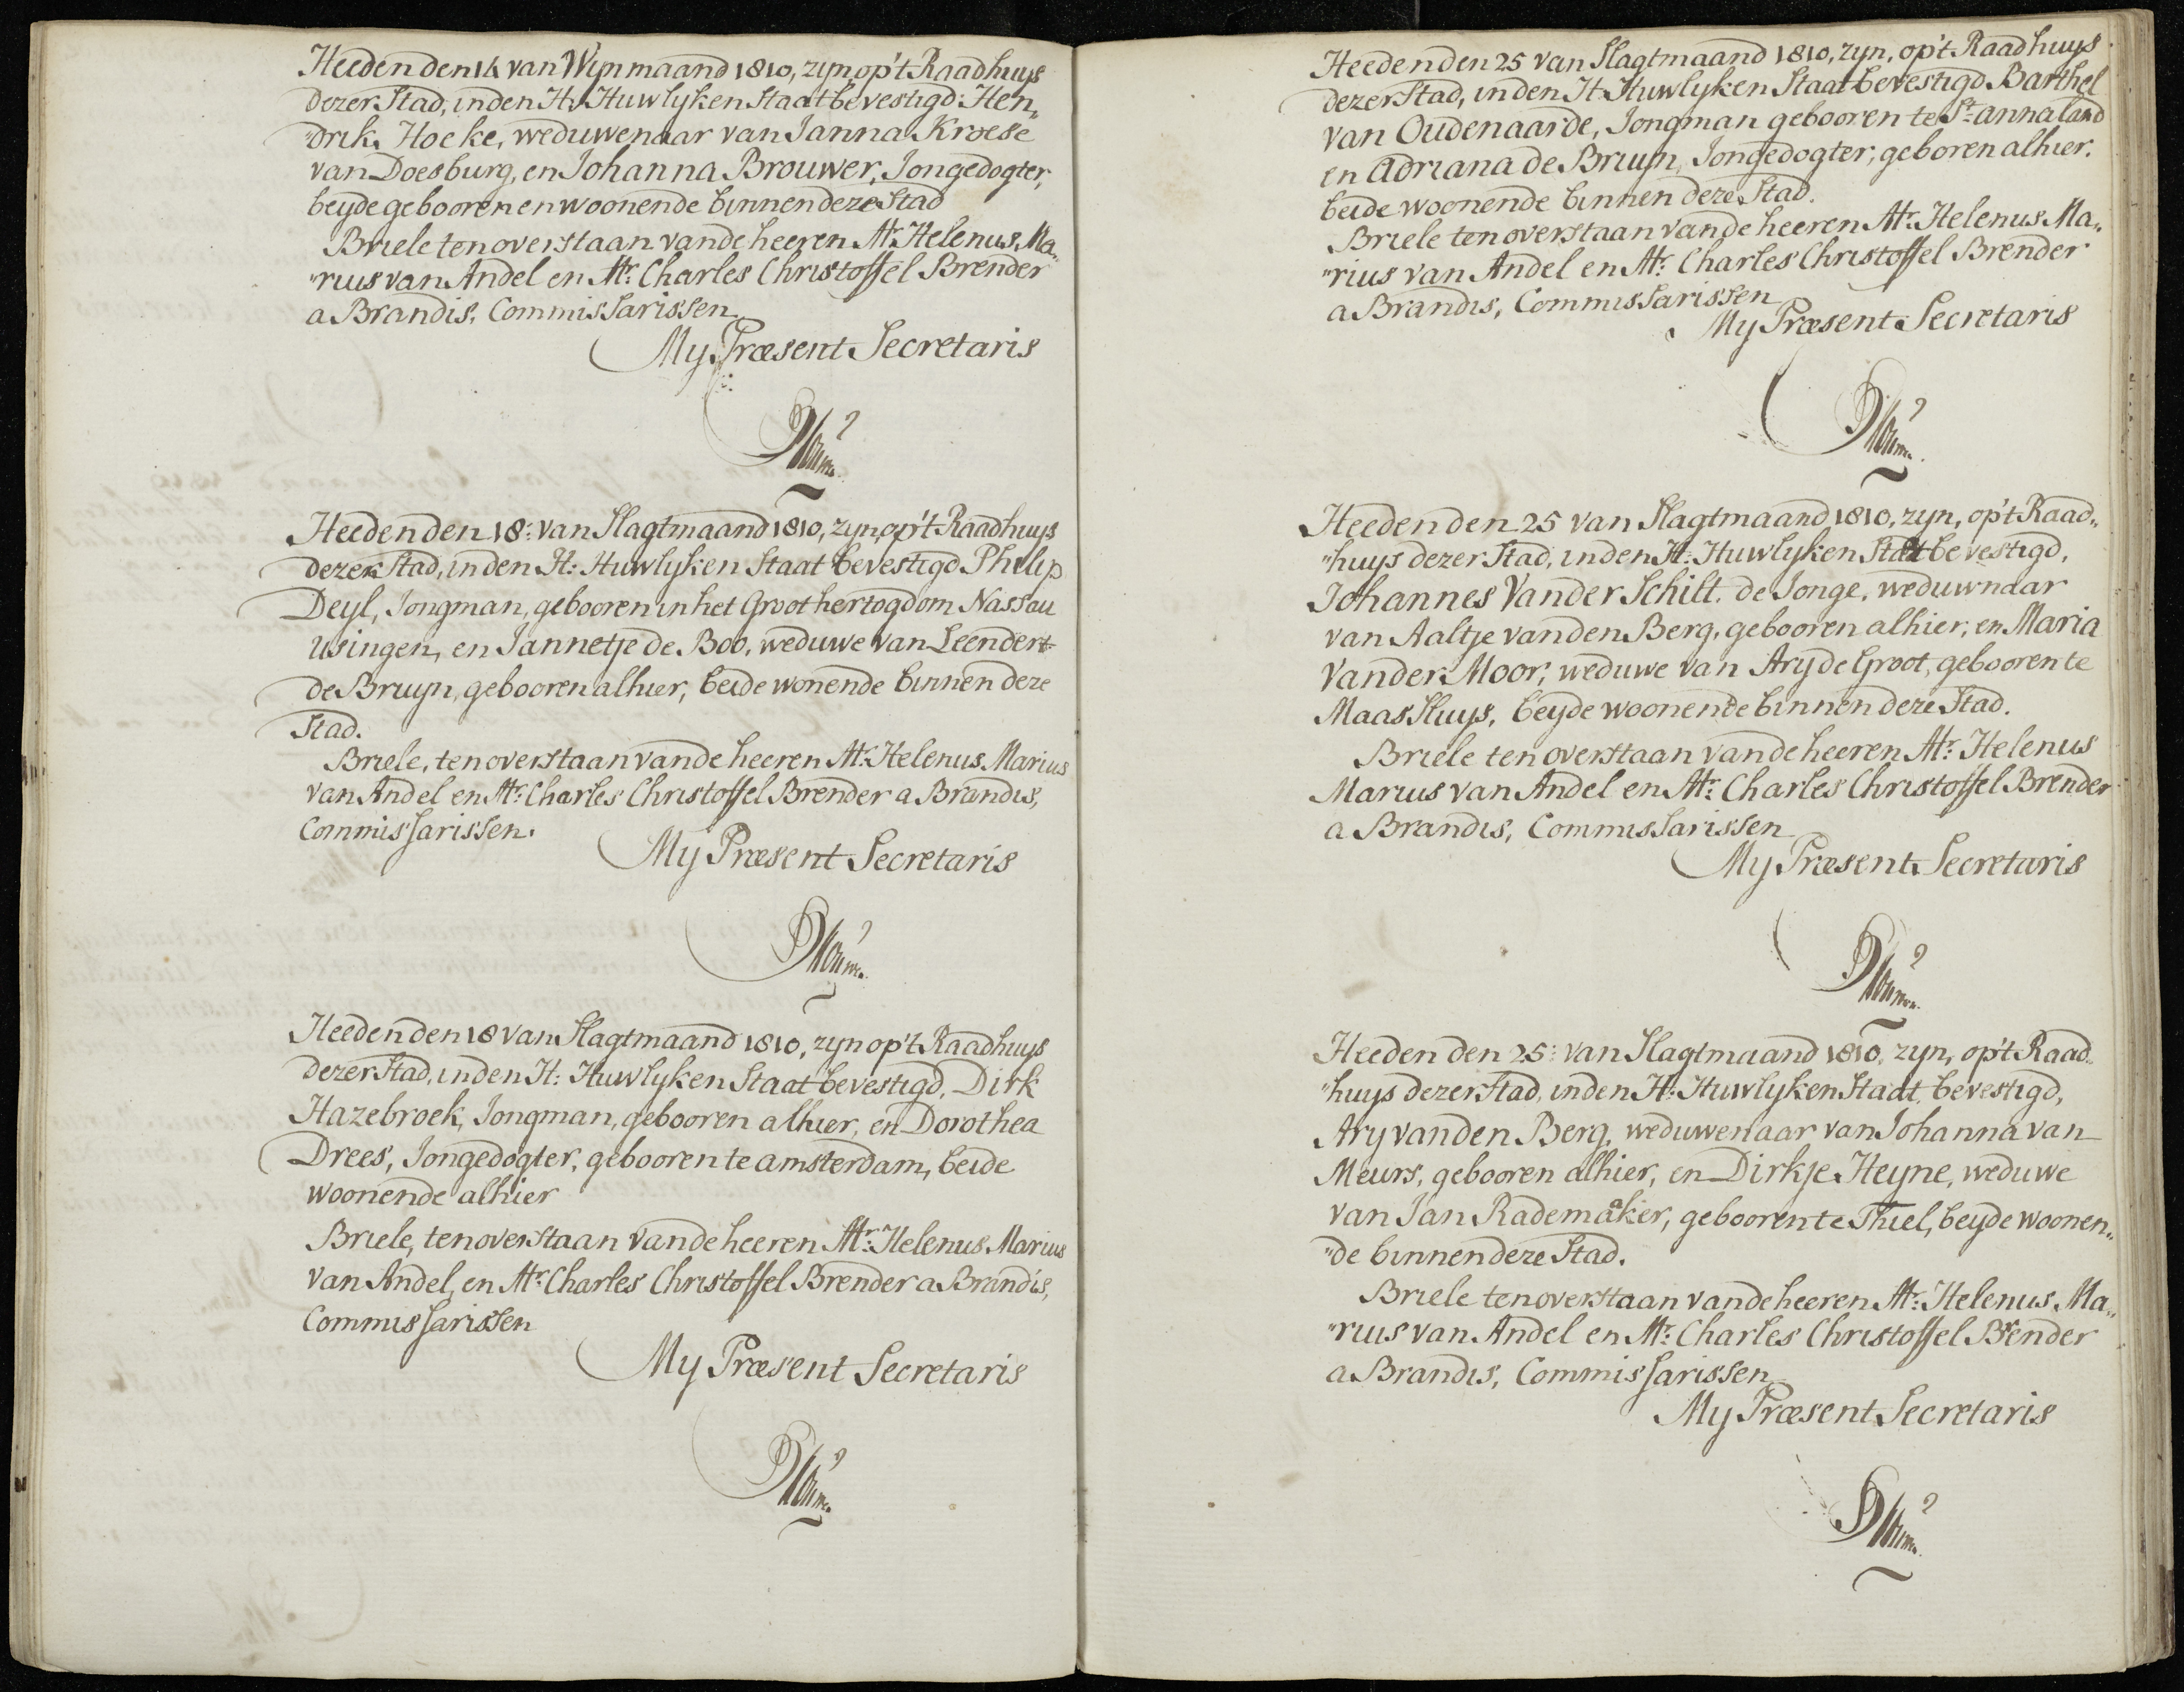 Heeden den 14 van Wynmaand 1810, zyn, op't Raadhuys
dezer Stad, in den H: Huwlyken Staat bevestigd: Hen„
„drik Hoeke, weduwenaar van Janna Kroese
van Doesburg, en Johanna Brouwer, Jongedogter,
beyde gebooren en woonende binnen deze Stad
Briele ten overstaan van de heeren Mr. Helenus Ma„
„rius van Andel en Mr: Charles Christoffel Brender
a Brandis, Commissarissen
My Præsent Secretaris
Heeden den 18: van Slagtmaand 1810, zyn, op't Raadhuys
dezer Stad, in den H: Huwlyken Staat bevestigd Philip
Deyl, Jongman, gebooren in het Groot hertogdom Nassau
Usingen, en Jannetje de Boo, weduwe van Leendert
de Bruyn, gebooren alhier, beide wonende binnen deze
Stad.
Briele, ten overstaan van de heeren Mr: Helenus Marius
van Andel en Mr: Charles Christoffel Brender a Brandis,
Commissarissen.
My Præsent Secretaris
Heeden den 18 van Slagtmaand 1810, zyn op't Raadhuys
dezer Stad, in den H: Huwlyken Staat bevestigd, Dirk
Hazebroek, Jongman, gebooren alhier, en Dorothea
Drees, Jongedogter, gebooren te amsterdam, beide
woonende alhier
Briele, ten overstaan van de heeren Mr: Helenus Marius
van Andel, en Mr: Charles Christoffel Brender a Brandis,
Commissarissen
My Præsent Secretaris
Heeden den 25 van Slagtmaand 1810, zyn, op't Raadhuys
dezer Stad, in den H: Huwlyken Staat bevestigd Barthel
van Oudenaarde, Jongman gebooren te St: annaland
en Adriana de Bruyn, Jongedogter, geboren alhier.
beide woonende binnen deze Stad.
Briele ten overstaan van de heeren Mr: Helenus Ma„
„rius van Andel en Mr: Charles Christoffel Brender
a Brandis, Commissarissen
My Præsent Secretaris
Heeden den 25 van Slagtmaand 1810, zyn, op't Raad„
„huys dezer Stad, in den H: Huwlyken Staat bevestigd,
Johannes Vander Schilt. de Jonge, weduwnaar
van Aaltje vanden Berg, gebooren alhier, en Maria
Vander Moor, weduwe van Ary de Groot, gebooren te
Maas Sluys, beyde woonende binnen deze Stad.
Briele ten overstaan van de heeren Mr: Helenus
Marius van Andel en Mr: Charles Christoffel Brender
a Brandis, Commissarissen
My Præsent Secretaris
Heeden den 25: van Slagtmaand 1810. zyn, op't Raad„
„huys dezer Stad, in den H: Huwlyken Staat bevestigd,
Ary vanden Berg, weduwenaar van Johanna van
Meurs, gebooren alhier, en Dirkje Heyne, weduwe
van Jan Rademaker, gebooren te Thiel, beyde woonen„
„de binnen deze Stad.
Briele ten overstaan van de heeren Mr: Helenus Ma„
„rius van Andel en Mr: Charles Christoffel Brender
a Brandis, Commissarissen
My Præsent Secretaris